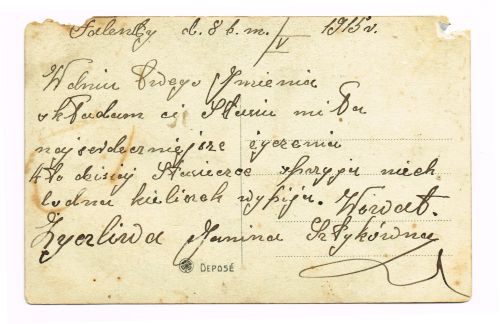 Falenty d. 8 b.m. /V 1915 r.
W dniu Twego Imienia
składam ci Stasiu miła
najserdeczniejsze życzenia
Kto dzisiaj Stasieczce sprzyja niech
do dna kieliszek wypija. Wowat.
Życzliwa Janina Sztykówna
DEPOSÉ